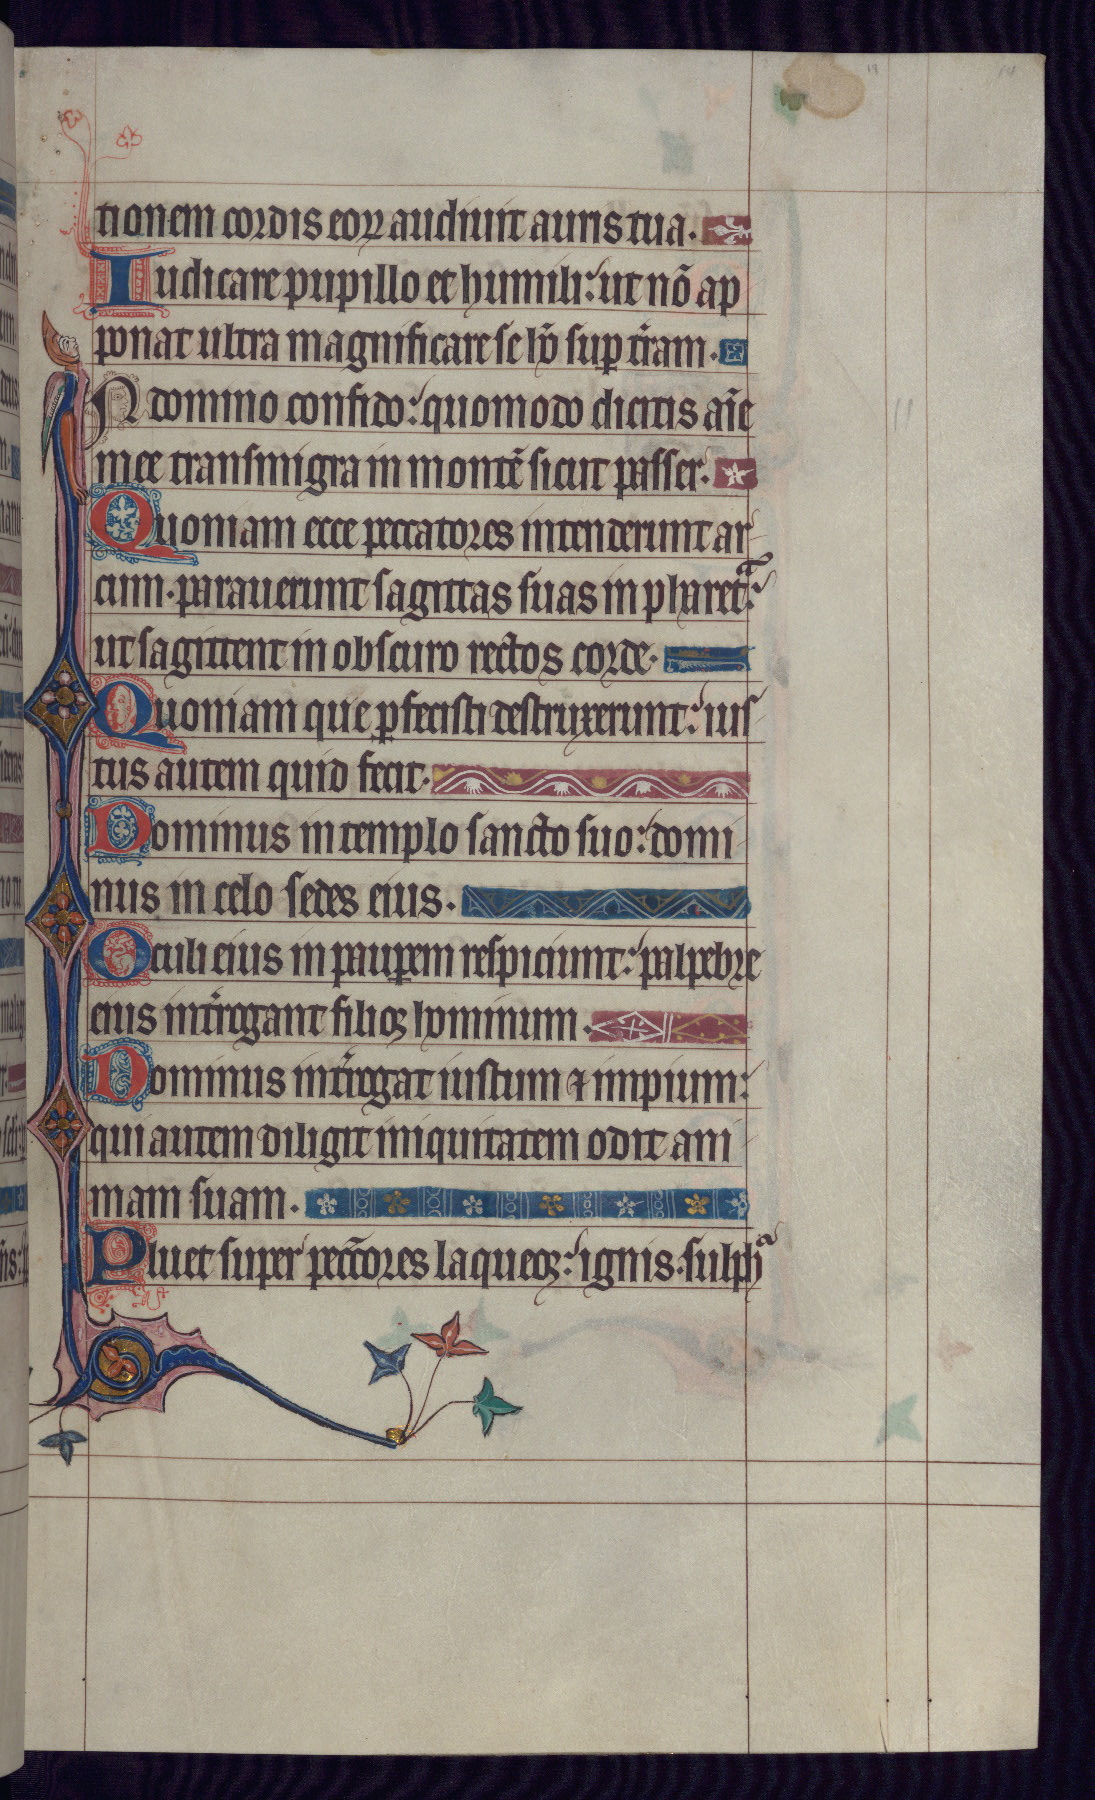 tionem cordis eoꝝ audiuit auris tua.
Iudicare pupillo et humili: ut nō ap
ponat ultra magnificare se hō suꝑ t̄ram.
In domino confido: quomodo dicitis aīe
mee transmigra in montē sicut passer.
Quoniam ecce peccatores intenderunt ar
cum. parauerunt sagittas suas in pharetᵃ:
ut sagittent in obscuro rectos corde.
Quoniam que ꝑfecisti destruxerunt: ius
tus autem quid fecit.
Dominus in templo sancto suo: domi
nus in celo sedes eius.
Oculi eius in pauꝑem respiciunt: palpebre
eius int̄rogant filioꝫ hominum.
Dominus int̄rogat iustum ⁊ impium:
qui autem diligit iniquitatem odit ani
mam suam.
Pluet super pecc̄ores laqueoꝫ: ignis. sulphᵃ
11